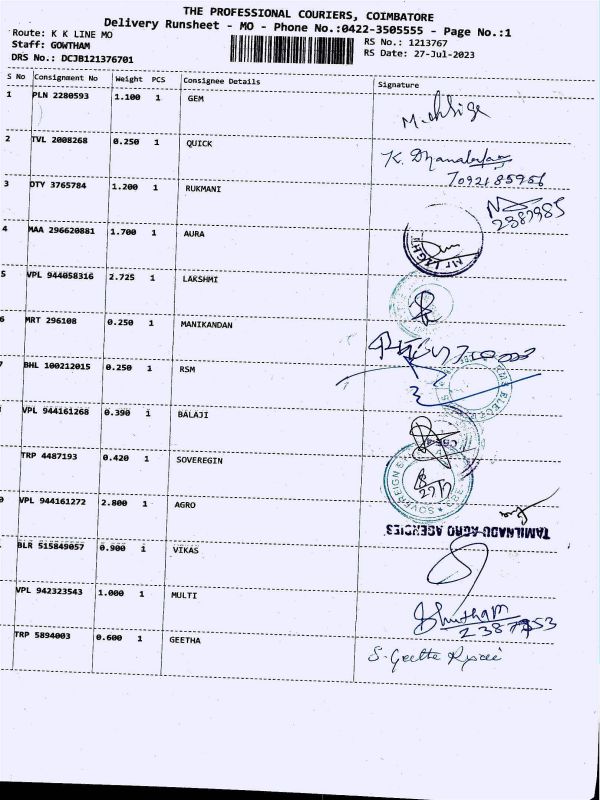 THE PROFESSIONAL COURIERS, COIMBATORE
Delivery Runsheet - MO - Phone No.:0422-3505555 - Page No.:1
Route: K K LINE MO
Staff: GOWTHAM
DRS No.: DCJB121376701
RS No.: 1213767
RS Date: 27-Jul-2023
S No Consignment No Weight PCS Consignee Details Signature
1 PLN 2280593 1.100 1 GEM
2 TVL 2008268 0.250 1 QUICK
K. Dhanalaxmi
7092185956
3 OTY 3765784 1.200 1 RUKMANI
2387985
4 MAA 296620881 1.700 1 AURA
5 VPL 944058316 2.725 1 LAKSHMI
6 MRT 296108 0.250 1 MANIKANDAN
7 BHL 100212015 0.250 1 RSM
VPL 944161268 0.390 1 BALAJI
TRP 4487193 0.420 1 SOVEREGIN
SOVEREIGN
0 VPL 944161272 2.800 1 AGRO
TAMILNADU AGRO AGENCIES
BLR 515849057 0.900 1 VIKAS
VPL 942323543 1.000 1 MULTI
TRP 5894003 0.600 1 GEETHA
S. Geetha